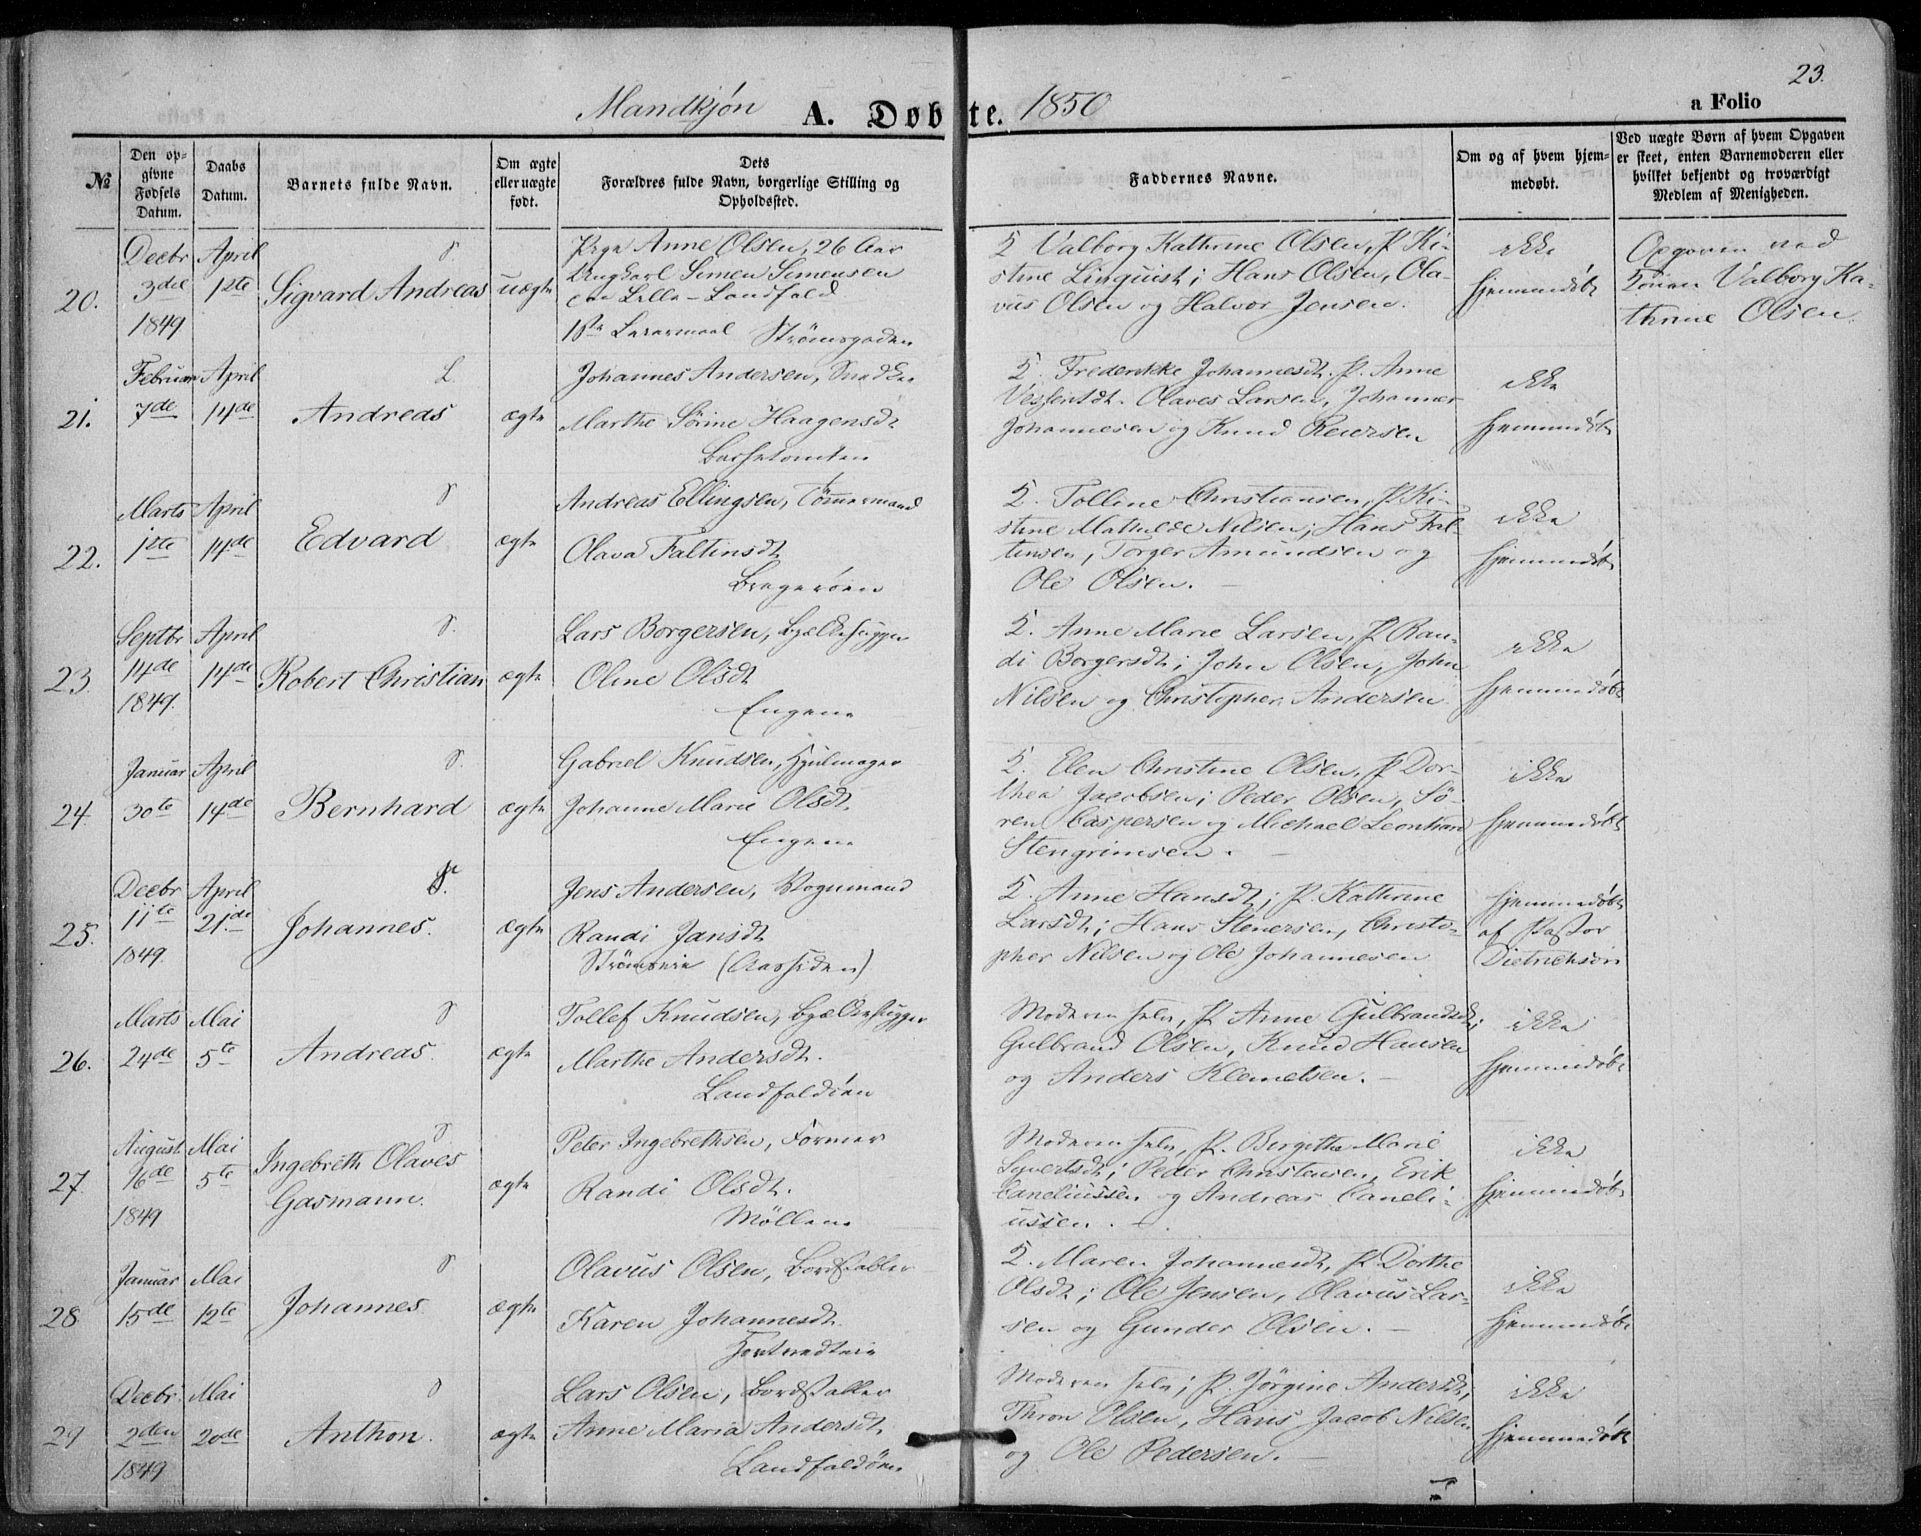 23.
Mandkjøn A. Døbte. 1850 a Folio
№
Den opgivne Fødsels Datum.
Daabs Datum.
Barnets fulde Navn.
Om ægte eller uægte født.
Dets Forældres fulde Navn, borgerlige Stilling og Opholdssted.
Faddernes Navne.
Om og af hvem hjemmedøbt.
Ved uægte Børn af hvem Opgaven er skeet, enten Barnemoderen eller hvilket bekjendt og troværdigt Medlem af Menigheden.
20.
Decbr
3die
1849
April
1ste
S
Sigvard Andreas
uægte
Pige Anne Olsen, 26 Aar
Ungkarl Simen Simensen
Lille-Landfald
1ste Leiermaal Strømsgaden
Valborg Kathrine Olsen, P. Ki-
stine Linquist; Hans Olsen, Ola-
vus Olsen og Halvor Jensen.
ikke
hjemmedøbt
Opgaven ved
Valborg Ka-
thrine Olsen.
21.
Februar
7de
April
14de
L.
Andreas
ægte
Johannes Andersen, Snedker
Marthe Sørine Haagensdt
Frederikke Johannesdt. P. Anne
Olaves Larsen, Johannes
Johannesen og Knud Reiersen
ikke
hjemmedøbt
22.
Marts
1ste
April
14de
S
Edvard
ægte
Andreas Ellingsen, Tømmermand
Olava Faltinsdt
Bragerøen
Tolline Christiansen, P. Ki-
stine Mathilde Nilsen; Hans Fal-
tinsen, Torger Amundsen og
Ole Olsen.
ikke
hjemmedøbt
23.
Septbr
14de
1849.
April
14de
S.
Robert Christian
ægte
Lars Borgersen, Bjælkehugger
Oline Olsdt
Engene
Anne Marie Larsen, P. Ran-
di Borgersdt; John Olsen, John
Nilsen og Christopher Andersen
ikke
hjemmedøbt
24.
Januar
30te
April
14de
S.
Bernhard
ægte
Gabriel Knudsen, Hjulmager
Johanne Marie Olsdt.
Engene
Elen Christine Olsen, P. Dor-
thea Jacobsen; Peder Olsen, Sø-
ren Caspersen og Michael Leonhard
Stengrimsen.
ikke
hjemmedøbt
25.
Decbr
11te
1849.
April
21de
Johannes.
ægte
Jens Andersen, Vognmand
Randi Jansdt
Strømsveie (Aassiden)
Anne Hansdt; P. Kathrine
Larsdt; Hans Stenersen, Christo-
pher Nilsen og Ole Johannesen
hjemmedøbt
af Pastor
Dietrichson
26.
Marts
24de
Mai
5te
S
Andreas.
ægte
Tollef Knudsen, Bjælkehugger
Marthe Andersdt.
Landfaldøen
Moderen selv, P. Anne Gulbrandsdt;
Gulbrand Olsen, Knud Hansen
og Anders Klemetsen.
ikke
hjemmedøbt
27.
August
16de
1849
Mai
5te
S
Ingebreth Olaves
Gasmann.
ægte
Peter Ingebrethsen, Former
Randi Olsdt.
Møllene
Moderen selv, P. Birgithe Marie
Syvertsdt; Peder Christensen, Erik
Caneliussen og Andreas Caneli-
ussen.
ikke
hjemmedøbt
28.
Januar
15de
Mai
12te
S
Johannes.
ægte
Olavus Olsen, Bordstabler
Karen Johannesdt.
Maren Johannesdt, P. Dorthe
Olsdt; Ole Jensen, Olavus Lar-
sen og Gunder Olsen.
ikke
hjemmedøbt
29
Decbr.
2den
1849
Mai
20de
S
Anthon.
ægte
Lars Olsen, Bordstabler
Anne Maria Andersdt.
Landfaldøen
Moderen selv; P. Jørgine Andersdt,
Thron Olsen, Hans Jacob Nilsen
og Ole Pedersen.
ikke
hjemmedøbt